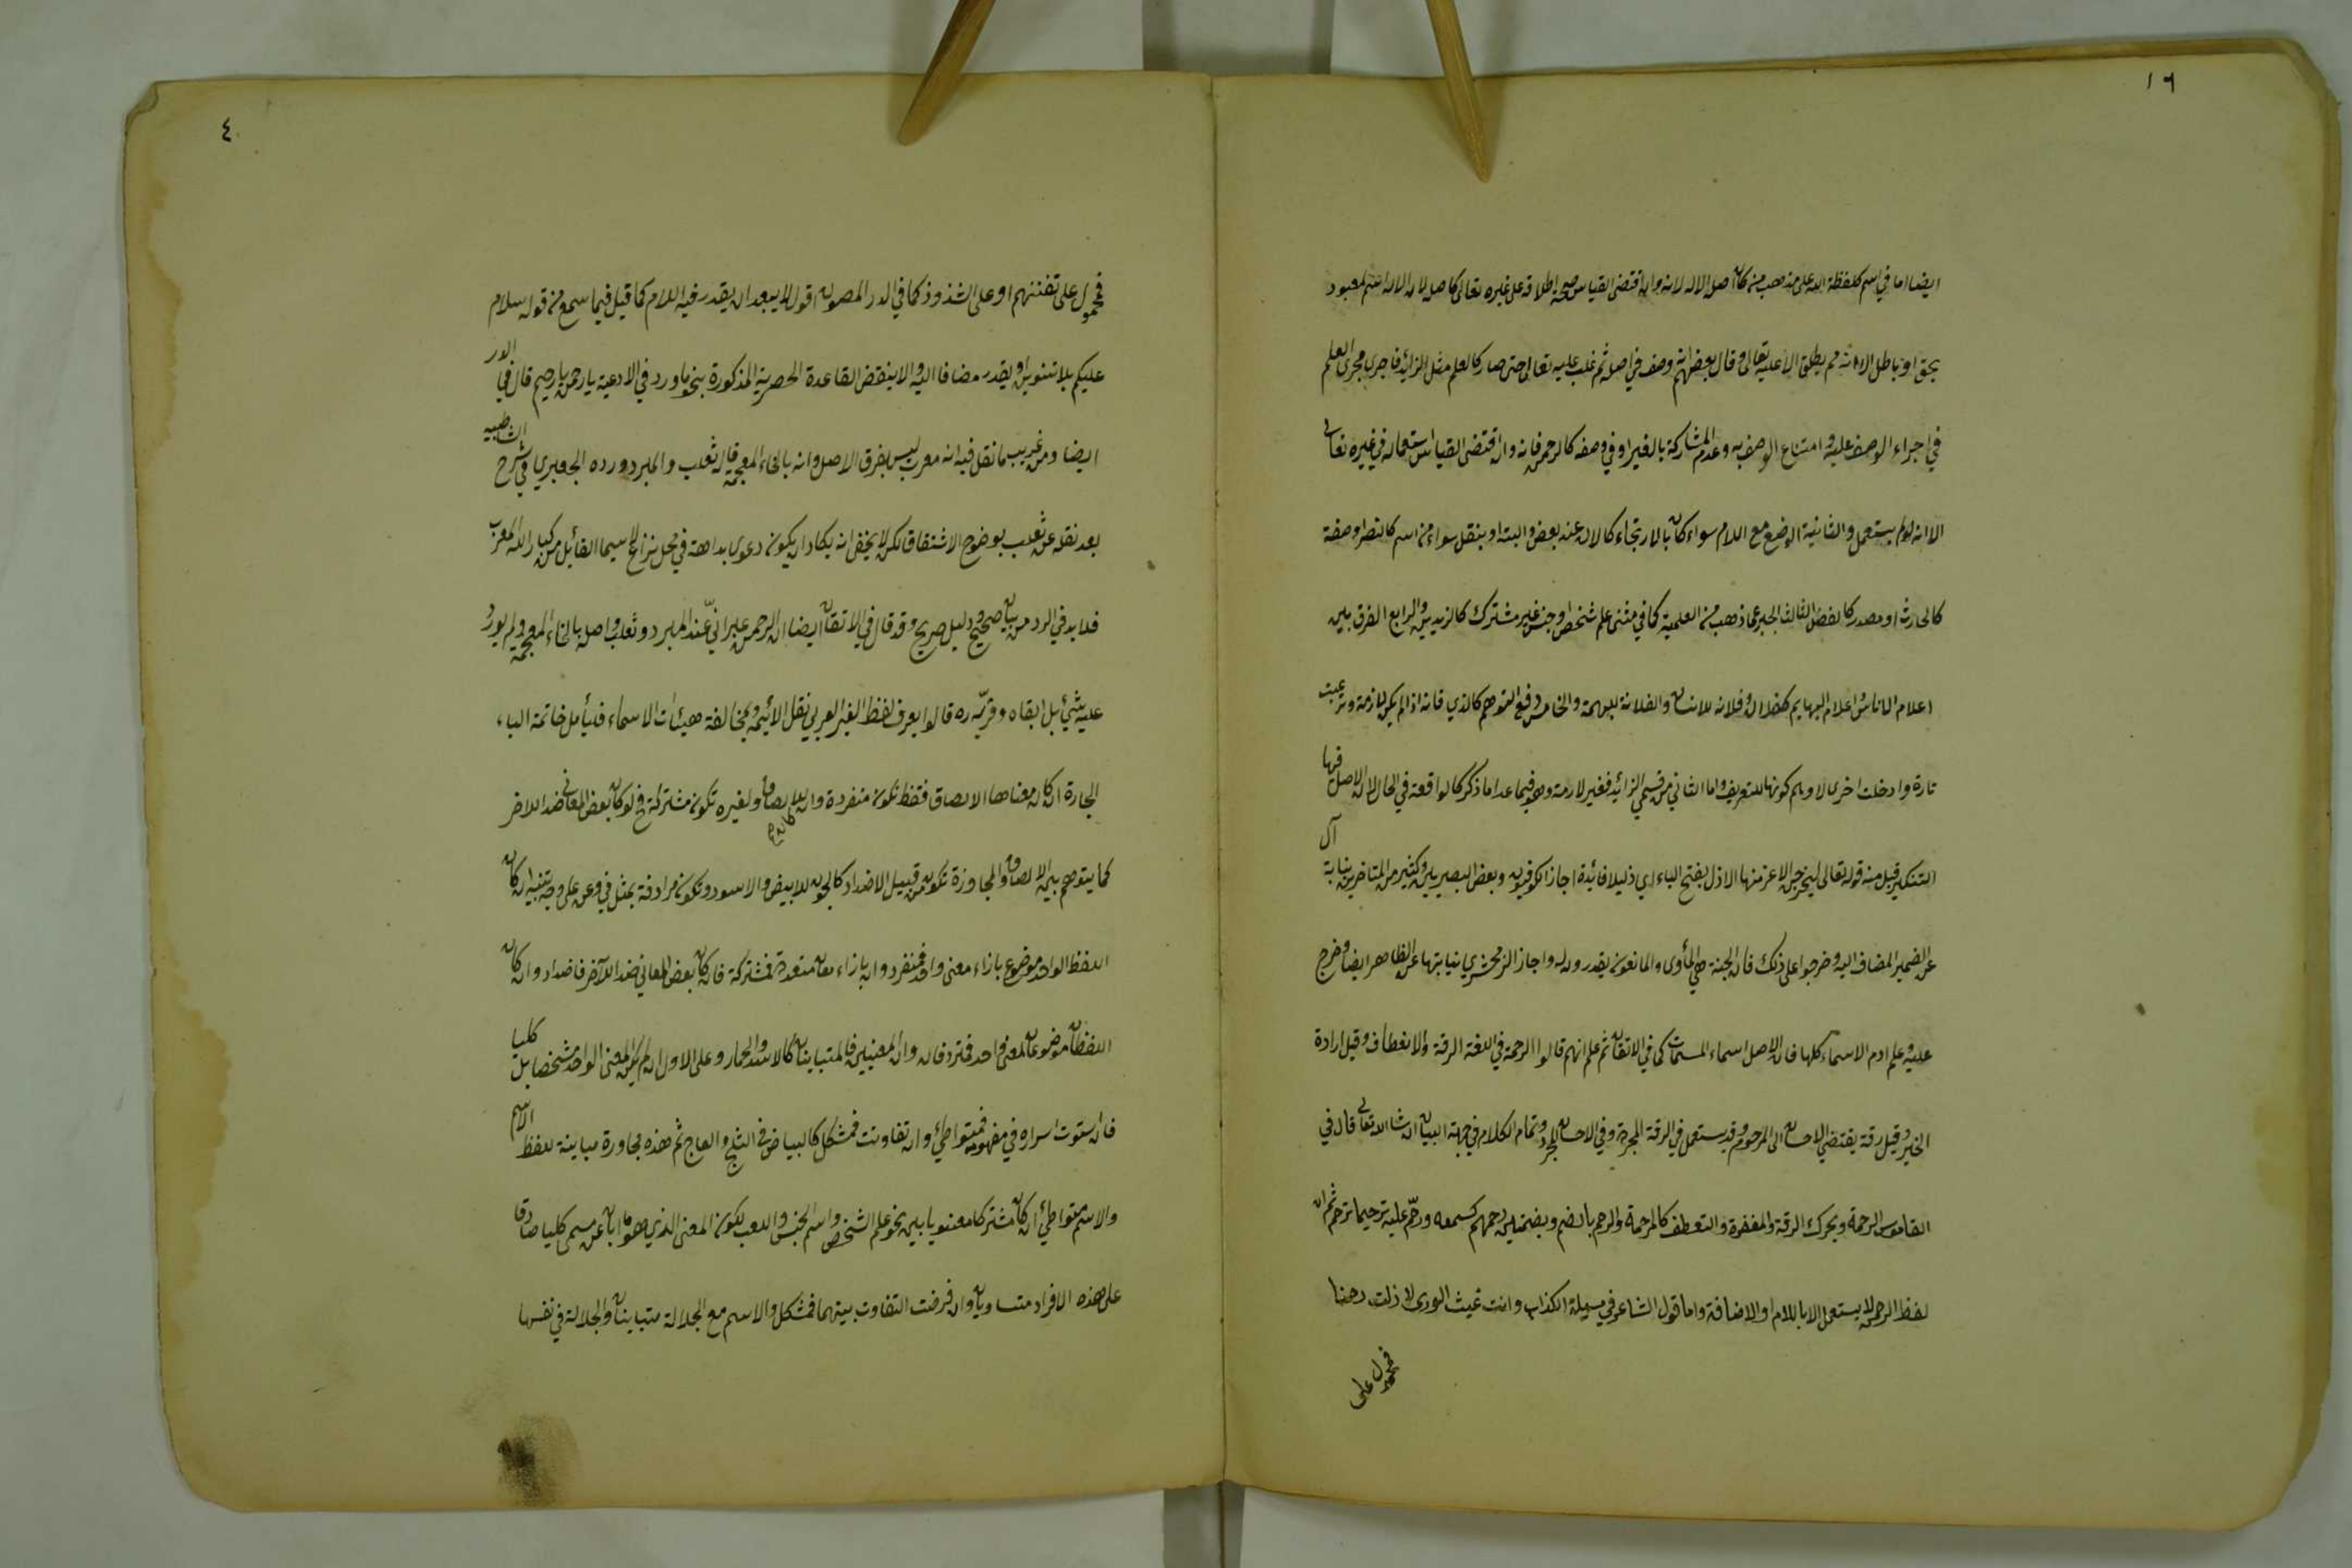 ١٦
ايضا اما في اسم كلفظة الله على مذهب من كان اصل الاله لانه وان اقتضى القياس صحة اطلاقه على غيره تعالى كاصل لان الاله اسم لمعبود
بحق او باطل الا انه لم يطلق الا عليه تعالى وقال بعضهم انه وصف في اصله ثم غلب عليه تعالى حتى صار كالعلم مثل الزائد فاجرى مجرى العلم
في اجراء الوصف عليه وامتناع الوصف به وعدم المشاركة بالغير او في وصفه كالرحمن فانه وان اقتضى القياس استعماله في غيره تعالى
الا انه لم يستعمل والثانية الوضع مع اللام سواء كان بالارتجاء كالان عند بعض والبتة او بنقل سواء من اسم كالنصر او صفة
كالحارث او مصدر كالفضل الثالث الجبر عما ذهب من العلمية كما في مثنى علم شخص او جنس غير مشترك كالزيدين والرابع الفرق بين
اعلام الاناس واعلام البهايم كفلان وفلانه للانسان والفلانة للبهمة والخامس دفع التوهم كالذي فانه اذا لم يكن لازمة ونزعت
تارة وادخلت اخرى لاوهم كونها للتعريف واما الثاني من قسمي الزائد فغير لازمة وهو فيما عدا ما ذكر كالواقعة في الحال لان الاصل فيها
التنكير قيل منه قوله تعالى ليخرجن الاعز منها الاذل بفتح الياء اي ذليلا فائدة اجاز الكوفيون وبعض البصريين وكثير من المتاخرين نيابة ال
عن الضمير المضاف اليه وخرجوا على ذلك فان الجنة هي المأوى والمانعون يقدرون له واجاز الزمخشري نيابتها عن الظاهر ايضا وخرج
عليه وعلم ادم الاسماء كلها فان الاصل اسماء المسميات كما في الاتقان ثم علم انهم قالوا الرحمة في اللغة الرقة والانعطاف وقيل ارادة
الخير وقيل رقة يقتضي الاحسان الى المرحوم وقد يستعمل في الرقة المجردة وفي الاحسان المجرد وتمام الكلام في جهة البيان ان شاء الله تعالى قال في
القاموس الرحمة ويحرك الرقة والمغفرة والتعطف كالمرحمة والرحم بالضم وبضمتين رحمهم كسمعه ورحم عليه ترحيما ترحم ثم ان
لفظ الرحمن لا يستعمل الا باللام او الاضافة واما قول الشاعر في مسيلة الكذاب وانت غيث الورى لا زلت رحمنا
فمحمول على
٤
فمحمول على تفننهم او على الشذوذ كما في الدر المصون اقول لا يبعد ان يقدر فيه اللام كما قيل فيما سمع من قوله سلام
عليكم بلا تنوين او يقدر مضافا اليه والا ينقض القاعدة الحصرية المذكورة بنحو ما ورد في الادعية يا رحمن يا رحيم قال في الدر
ايضا ومن غريب ما نقل فيه انه معرب ليس بفرق الاصل وانه بالخاء المعجمة قاله ثعلب والمبرد ورده الجعبري في شرح الشاطبيه
بعد نقله عن ثعلب بوضوح الاشتقاق لكن لا يخفى انه يكاد ان يكون دعوى بداهة في محل نزاع لا سيما القائل من كبار اللغة العرب
فلا بد في الرد من بيان صحيح ودليل صريح وقد قال في الاتقان ايضا ان الرحمن عبراني عند المبرد وثعلب واصله بالخاء المعجمة ولم يورد
عليه بشئ بل ابقاه وقربه ره قالوا يعرف لفظ الغير العربي بنقل الائمة وبمخالفة هيئات الاسماء فليأمل خاتمة الباء
الجارة ان كان معناها الالصاق فقط تكون منفردة وان كان للالصاق ولغيره تكون مشتركة فح لو كان بعض المعاني ضد الاخر
كما يتوهم بين الالصاق والمجاوزة تكون من قبيل الاضداد كالجون للابيض والاسود وتكون مرادفة بمثل في وعن على وجه تنبيه ان كان
اللفظ الواحد موضوع بازاء معنى واحد فمنفرد وان بازاء معان متعددة فمشتركة فان كان بعض المعاني ضد الآخر فاضداد وان كان
اللفظان موضوعان لمعنى واحد فمترادفان وان لمعنيين فالمتباينان كالاسد والحمار وعلى الاول ان لم يكن المعنى الواحد مشخصا بل كليا
فان ستوت اسراره في مفهومه فمتواطئ وان تفاوتت فمشكك كالبياض في الثلج والعاج ثم هذه بجاورة مباينة للفظ الاسم
والاسم متواطئ ان كان مشتركا معنويا بين نحو علم الشخص واسم الجنس واللعب لكون المعنى الذي هو ما ابان عن مسمى كليا صادقا
على هذه الافراد متساويان وان فرضت التفاوت بينهما فمشكل والاسم مع الجلالة متباينان والجلالة في نفسها